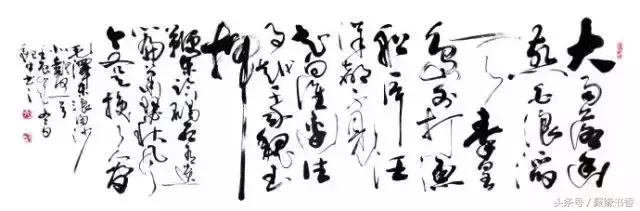 大雨落幽
燕白浪滔
天秦皇
岛外打渔
船一片汪
洋都不见
知向谁边往
事越千年魏武
挥
鞭东临碣石有遗
篇萧瑟秋风
今又是换了人间
毛泽东浪淘沙
北戴河一首
头条号 / 缘书香